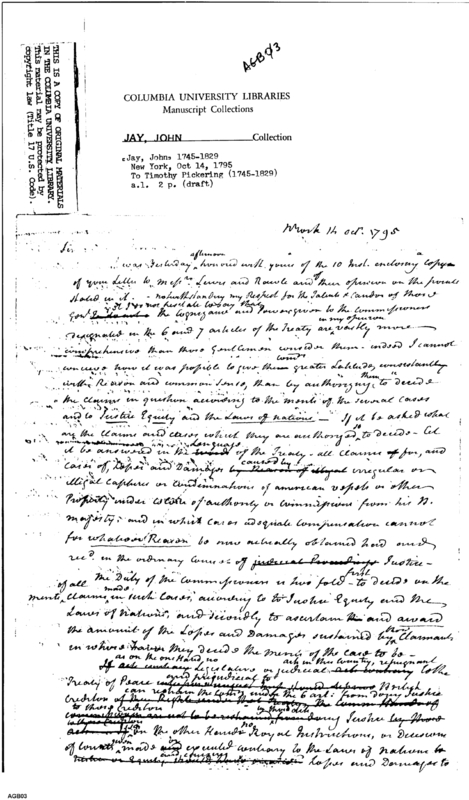 AGB03
THIS IS A COPY OF ORIGINAL MATERIALS
IN THE COLUMBIA UNIVERSITY LIBRARY.
This material may be protected by
copyright law (Title 17 U.S. Code).
COLUMBIA UNIVERSITY LIBRARIES
Manuscript Collections
JAY, JOHN Collection
Jay, John: 1745-1829
New York, Oct 14, 1795
To Timothy Pickering (1745-1829)
a.l. 2 p. (draft)
NYork 14 Oct. 1795
Sir
afternoon
was Yesterday honored with yours of the 10 Inst. enclosing a Copy
of your Letter to Messrs. Lewis and Rawle and their opinion on the points
stated in it. notwithstanding my Respect for the Talents & Candor of those
Gent. I do not hesitate to say that the Cognizance and Power given to the Commissioners
in my opinion
designated in the 6 and 7 articles of the Treaty are vastly more
comprehensive than those Gentlemen consider them. indeed I cannot
conceive how it was possible to give them greater Latitude, consistently
with Reason and common Sense, than by authorizing them to decide
the Claims in question according to the merits of the several Cases
and to Justice Equity and the Laws of nations — If it be asked what
are the Claims and Cases which they are authorized so to decide – let
Language
it be answered in the words of the Treaty – all Claims for, and
caused by
Cases of, Losses and Damages by Reason of illegal irregular or
illegal Captures or Condemnations of american vessels or other
Property under colour of authority or Commissions from his B.
majesty: and in which Cases adequate Compensation cannot
for whatever Reason be now actually obtained had and
recd. in the ordinary course of judicial Proceedings Justice –
first
The Duty of the Commissioners is two fold – to decide on the
of all made
merits, Claims in such Cases, according to Justice Equity and the
Laws of Nations, and secondly to ascertain and award
the amount of the Losses and Damages sustained by those Claimants
in whose favor they decide the merits of the case to be –
as on the one Hand, no
Legislative or judicial acts in this Country, repugnant to the
and prejudicial to
Treaty of Peace British
Creditors can restrain the Commissioners under the 6 art: from doing Justice
to those Creditors
on the other Hand no Royal Instructions, or Decisions
of Courts, made or executed contrary to the Laws of Nations to
Justice or Equity Losses and Damages to
AGB03